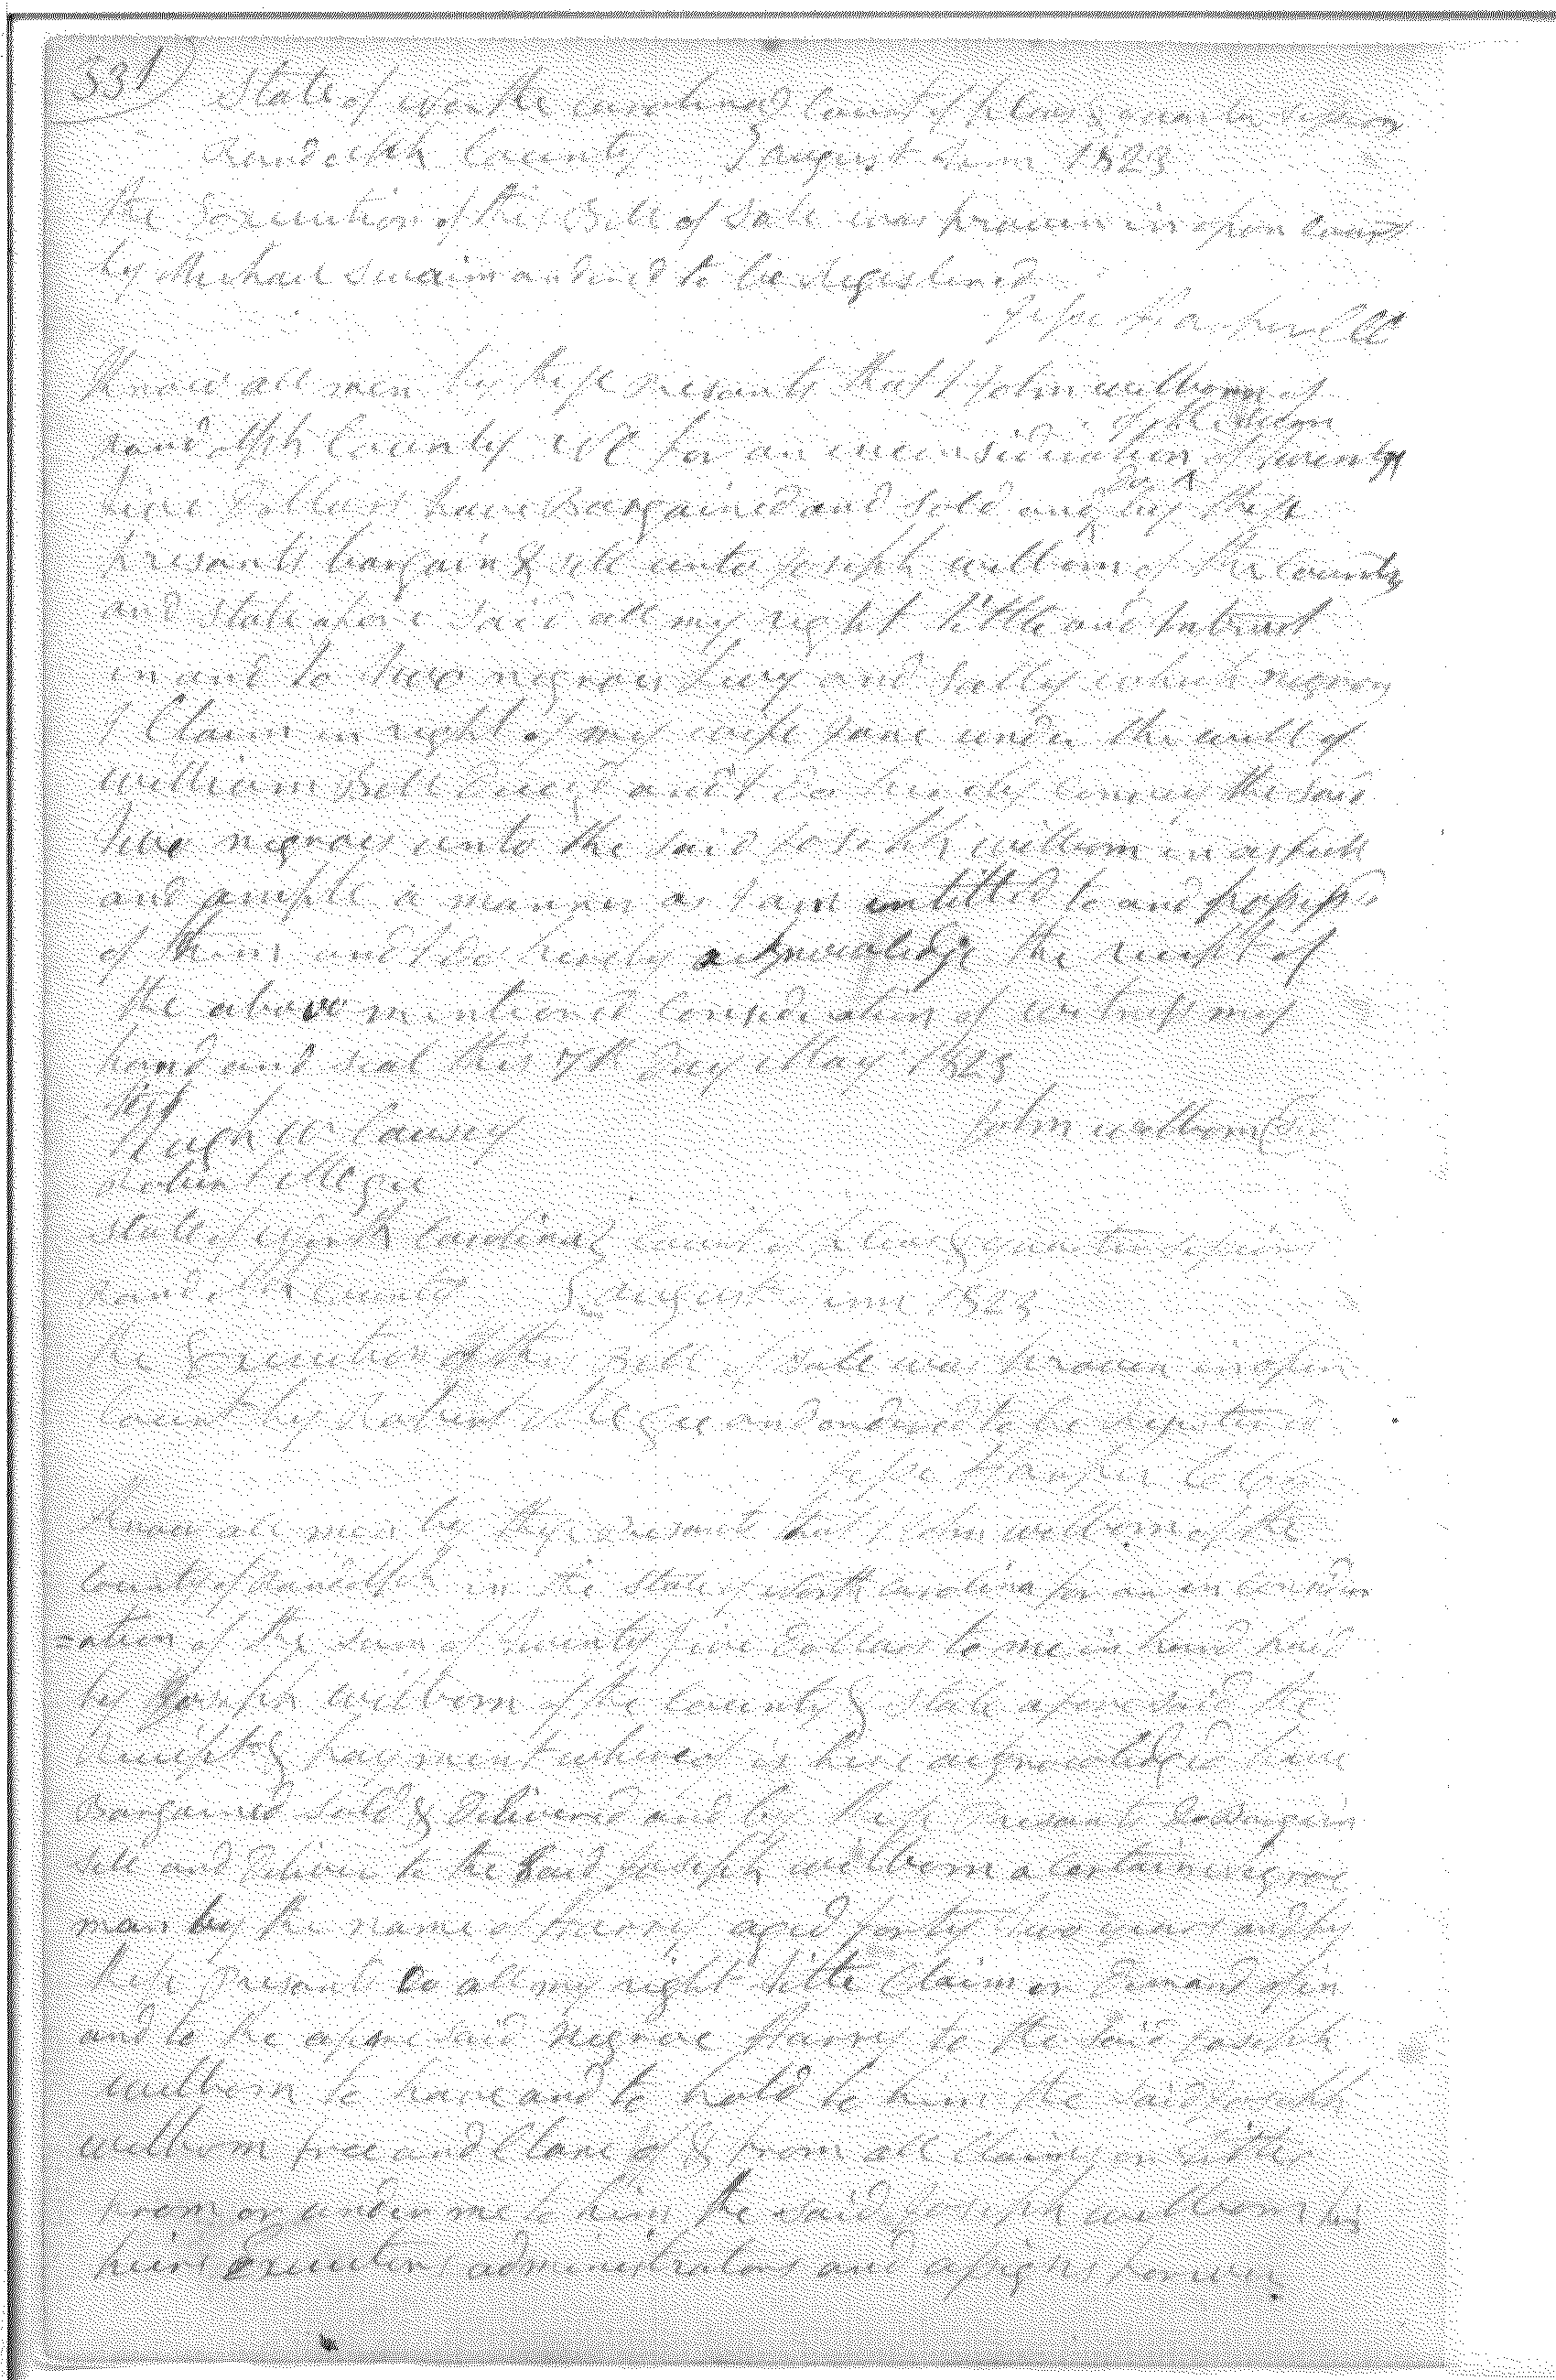 531
State of North Carolina Court of Pleas & quarter Sessions
Randolph County } August Term 1823
the Execution of this Bill of Sale was proven in open Court
by Michael Swaim ordered to be Registered
Jesse Harper CC
Know all men by these presants that I John Welborn of
of the sum
randolph County NC for an in considiration ^ of twenty
Do
five Dollars have Bargained and Sold and ^ by these
presants bargain & sell unto Joseph welborn of the County
and State afore Said all my right tittle and Intrust
in and to two negroes Lucy and Sally which negroes
I Claim in right of my wife Jane under the will of
William Bell Decesd and I do hereby convey the said
two negroes unto the said Joseph welborn in as full
and ample a manner as I am intitled to and possess
of them and I do hereby acknowledge the receipt of
the above mentioned Consideration of witness my
hand and seal this 7th Day May 1823
Test
Hugh W Causey
John welborn
State of North Carolina } Court of Pleas & quarter Sessions
Randolph County } August Term 1823
the Execution of this Bill of Sale was proven in open
Court by Robert and ordered to be Registered
Jesse Harper
Know all men by these presants that I John welborn of the
County of Randolph in the State of North Carolina for an in Considur
-ation of the sum of Twenty five Dollars to me in hand paid
by Joseph Welborn of the County & State afore said the
Receipt & payment whereof is here acknowledged have
Bargained Sold & Delivered and by these presants Do Bargain
Sell and Deliver to the Said Joseph welborn a Certain negroe
man by the name of Harry aged forty two years and by
these presants Do all my right title Claim or Demand of in
and to the afore said Negroe Harry to the said Joseph
welborn to have and to hold to him the said Joseph
welborn free and Clare of & from all Claims or tittles
from or under me to him the said Joseph welborn his
heirs Executors administrators and assigns forever